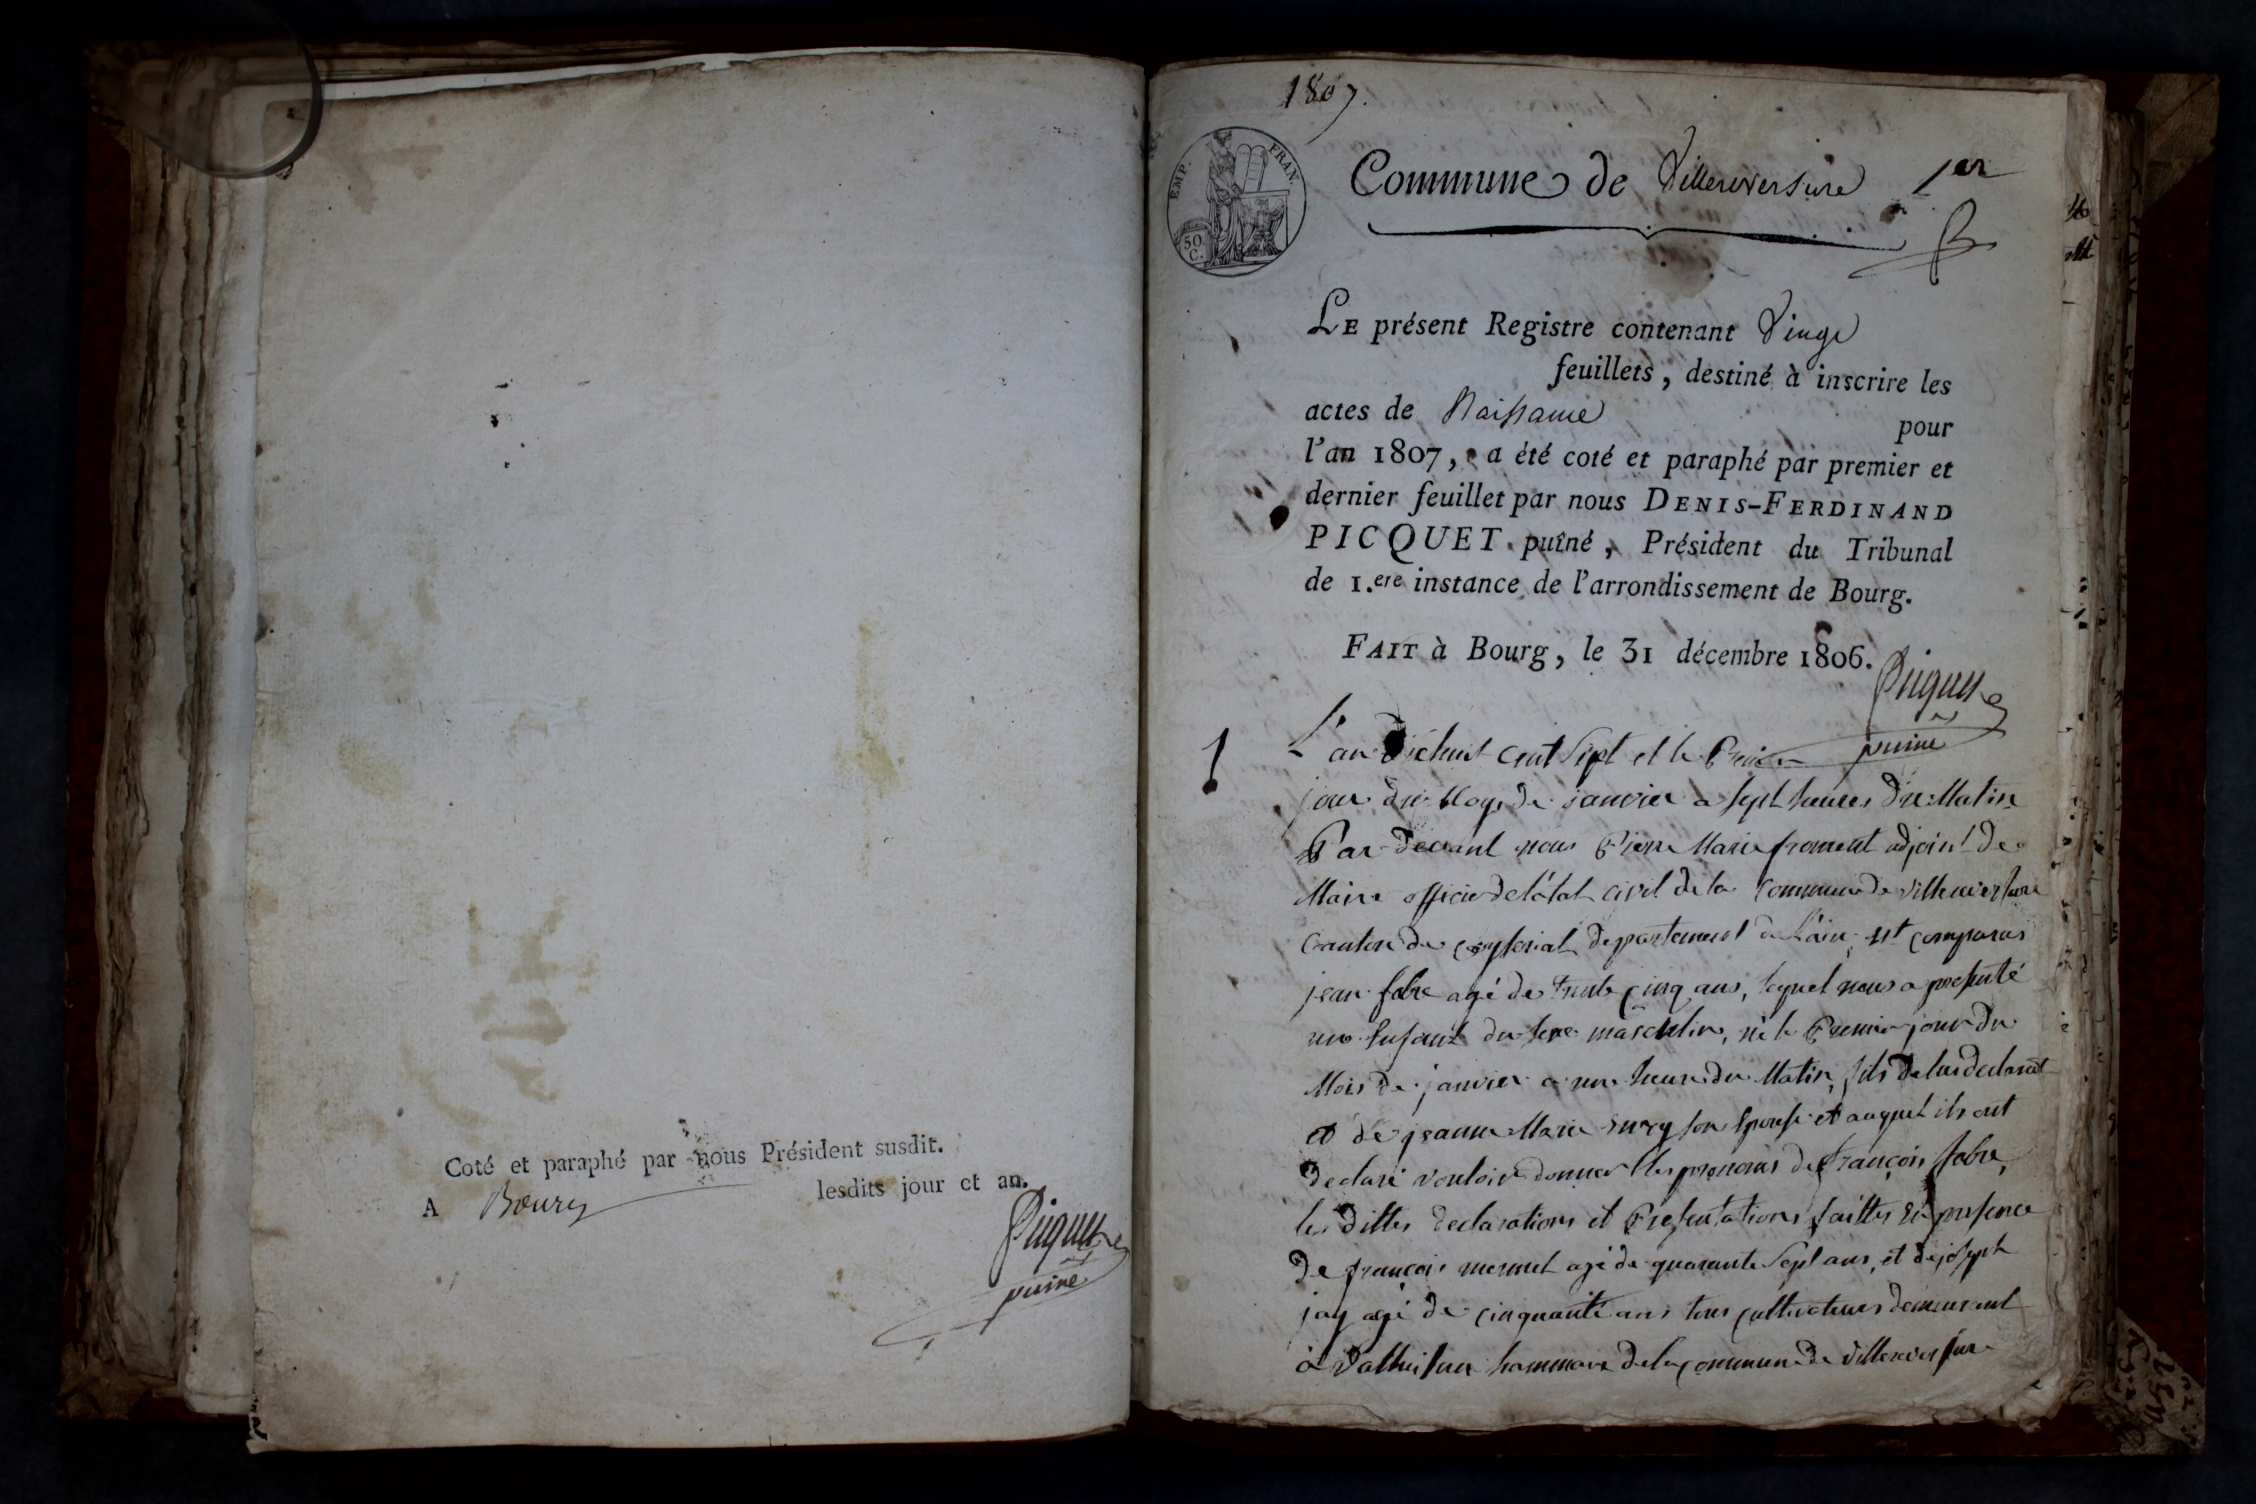 Coté et paraphé par nous Président susdit.
A Bourg lesdits jour et an.
Picquet
puiné
1807.
EMP. FRAN.
50
C.
Commune de Villereversure 1er
LE présent Registre contenant Vingt
feuillets, destiné à inscrire les
actes de Naissance pour
l'an 1807, a été coté et paraphé par premier et
dernier feuillet par nous DENIS-FERDINAND
PICQUET puîné, Président du Tribunal
de 1.ere instance de l'arrondissement de Bourg.
FAIT à Bourg, le 31 décembre 1806.
Picquet
puiné
1
L'an dixhuit cent sept et le Premier
jour du Moys de janvier a sept heures du Matin
Par devant nous Pierre Marie froment adjoint de
Maire officier de l'état civil de la Commune de villereversure
Canton de ceyseriat departement de L'ain, est comparus
jean fabre agé de trente cinq ans, lequel nous a presenté
un Enfant du sexe masculin, né le Premier jour du
Mois de janvier a une heure du Matin, fils de lui declarant
et de jeanne Marie son Epouse et auquel ils ont
declaré vouloir donner les prenoms de françois fabre,
les dittes declarations et Presentations faittes En presence
de françois mermet agé de quarante Sept ans, et de joseph
jay agé de cinquante ans tous cultivateurs demeurant
à hammau de la commune de villereversure